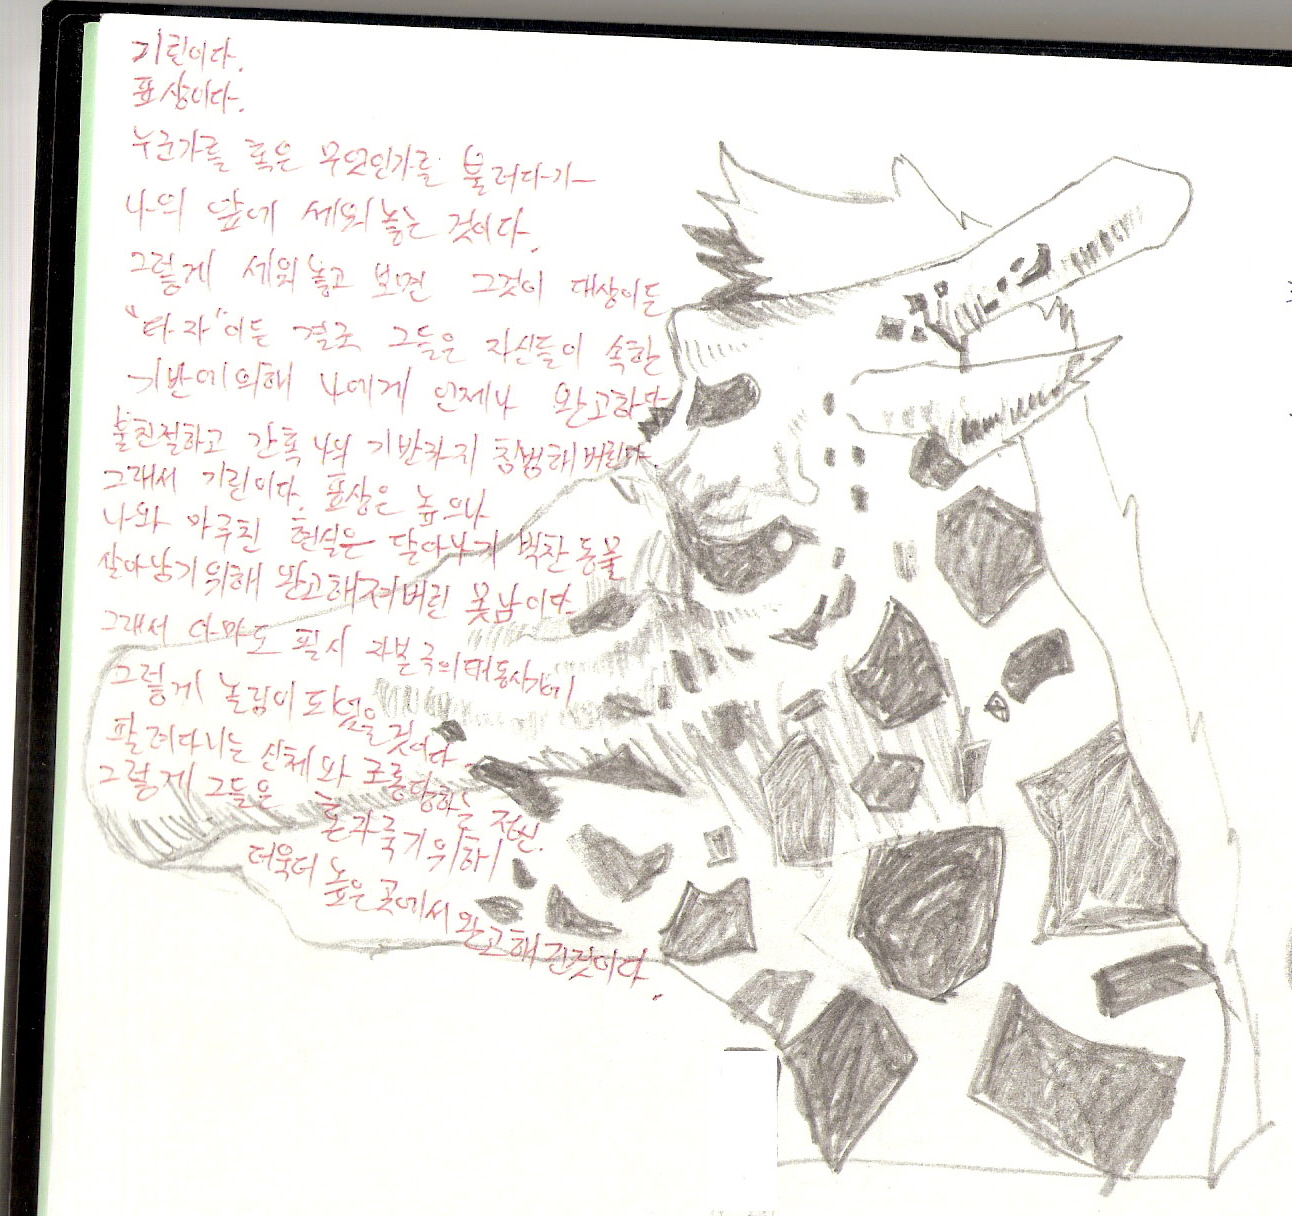 기린이다.
표상이다.
누군가를 혹은 무엇인가를 불러다가
나의 앞에 세워놓는 것이다.
그렇게 세워놓고 보면 그것이 대상이든
"타자"이든 결국 그들은 자신들이 속한
기반에 의해 나에게 언제나 완고하고
불친절하고 간혹 나의 기반까지 침범해버린다.
그래서 기린이다. 표상은 높으나
나와 마주친 현실은 달아나기 벅찬 동물
살아남기 위해 완고해져버린 못남이다.
그래서 다마도 필시 자본국의
그렇게 놀림이 되었을 것이다.
팔려다니는 신체와 조롱당하는 정신.
그렇게 그들은 눈 가죽기 위해
더욱더 높은 곳에서 완고해진것이다.